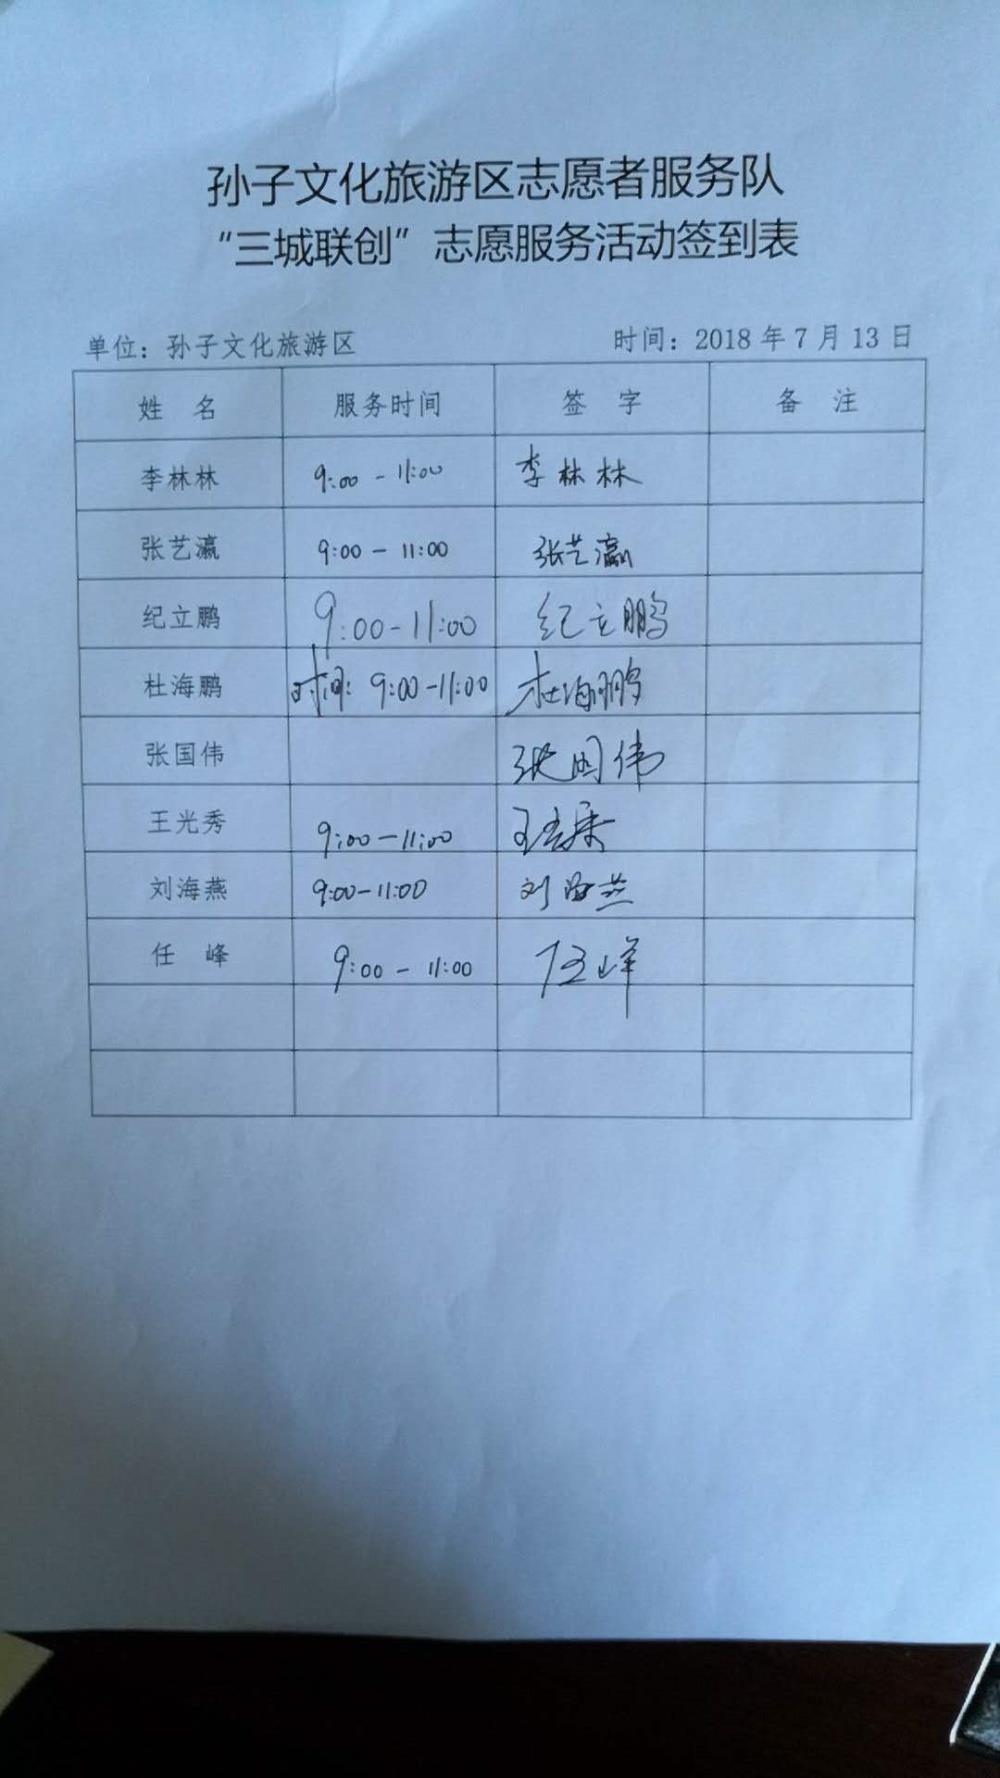 孙子文化旅游区志愿者服务队
“三城联创”志愿服务活动签到表
单位：孙子文化旅游区 时间：2018年7月13日
姓 名 服务时间 签 字 备 注
李林林 9:00-11:00 李林林
张艺瀛 9:00-11:00 张艺瀛
纪立鹏 9:00-11:00 纪立鹏
杜海鹏 时间：9:00-11:00 杜海鹏
张国伟 张国伟
王光秀 9:00-11:00 王光秀
刘海燕 9:00-11:00 刘海燕
任 峰 9:00-11:00 任峰